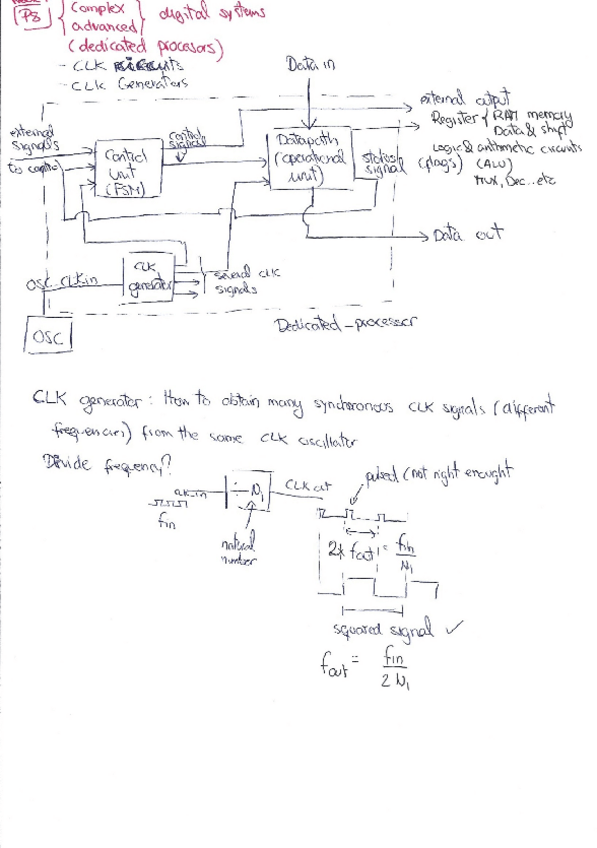 P8
Complex
advanced
digital systems
(dedicated procesors)
- CLK circuits
- CLK Generators
Data in
external output
Register & RAM memory
Data & shift
Logic & arithmetic circuits
(ALU)
MUX, Dec...etc
external signals
to control
Control Unit (FSM)
control signals
Datapath (operational unit)
status signal (flags)
Data out
OSC_CLKin
CLK generator
several CLK signals
OSC
Dedicated-processor
CLK generator: How to obtain many synchronous CLK signals (different
frequencies) from the same CLK oscillator
Divide frequency?
CLK_in
fin
÷ N1
natural number
CLK out
pulsed (not right enought
2x fout' = fin / N1
squared signal ✓
fout = fin / 2 N1